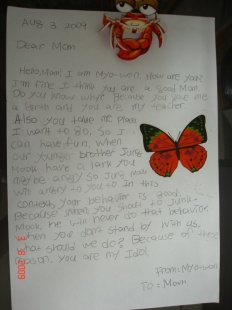 Aug 3 2009
Dear Mom
Hello, Mom, I am Myo-won. How are you?
I'm fine I think you are a good Mom.
Do you know why? Because you give me
a birth and you are my teacher.
Also you take me place
I want to go, So I
can have fun, when
our younger brother Jung
Mook have a lark you
maybe angry So Jung mook
will angry to you to. In this
context, your behavior is good.
Because when you shout to Jung-
Mook, he will never do that behavior.
when you don't stand by with us,
what should we do? Because of these
reason, you are my Idol.
From: Myo-won
To: Mom